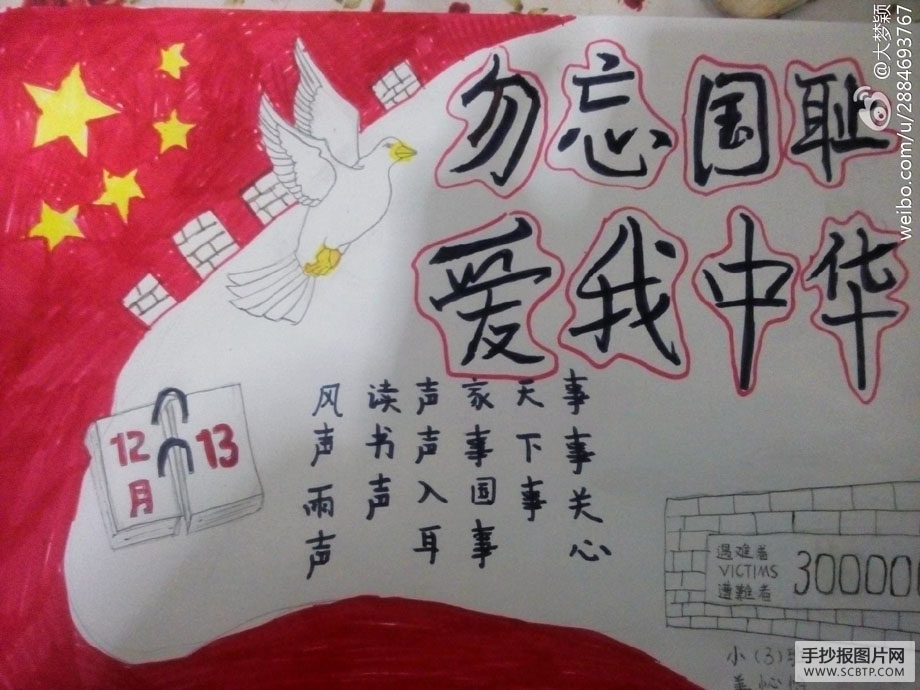 勿忘国耻
爱我中华
风声雨声
读书声
声声入耳
家事国事
天下事
事事关心
12月
13
遇难者
VICTIMS
遭難者
300000
小(3)
@大梦颖
weibo.com/u/2884693767
手抄报图片网
SCBTP.COM